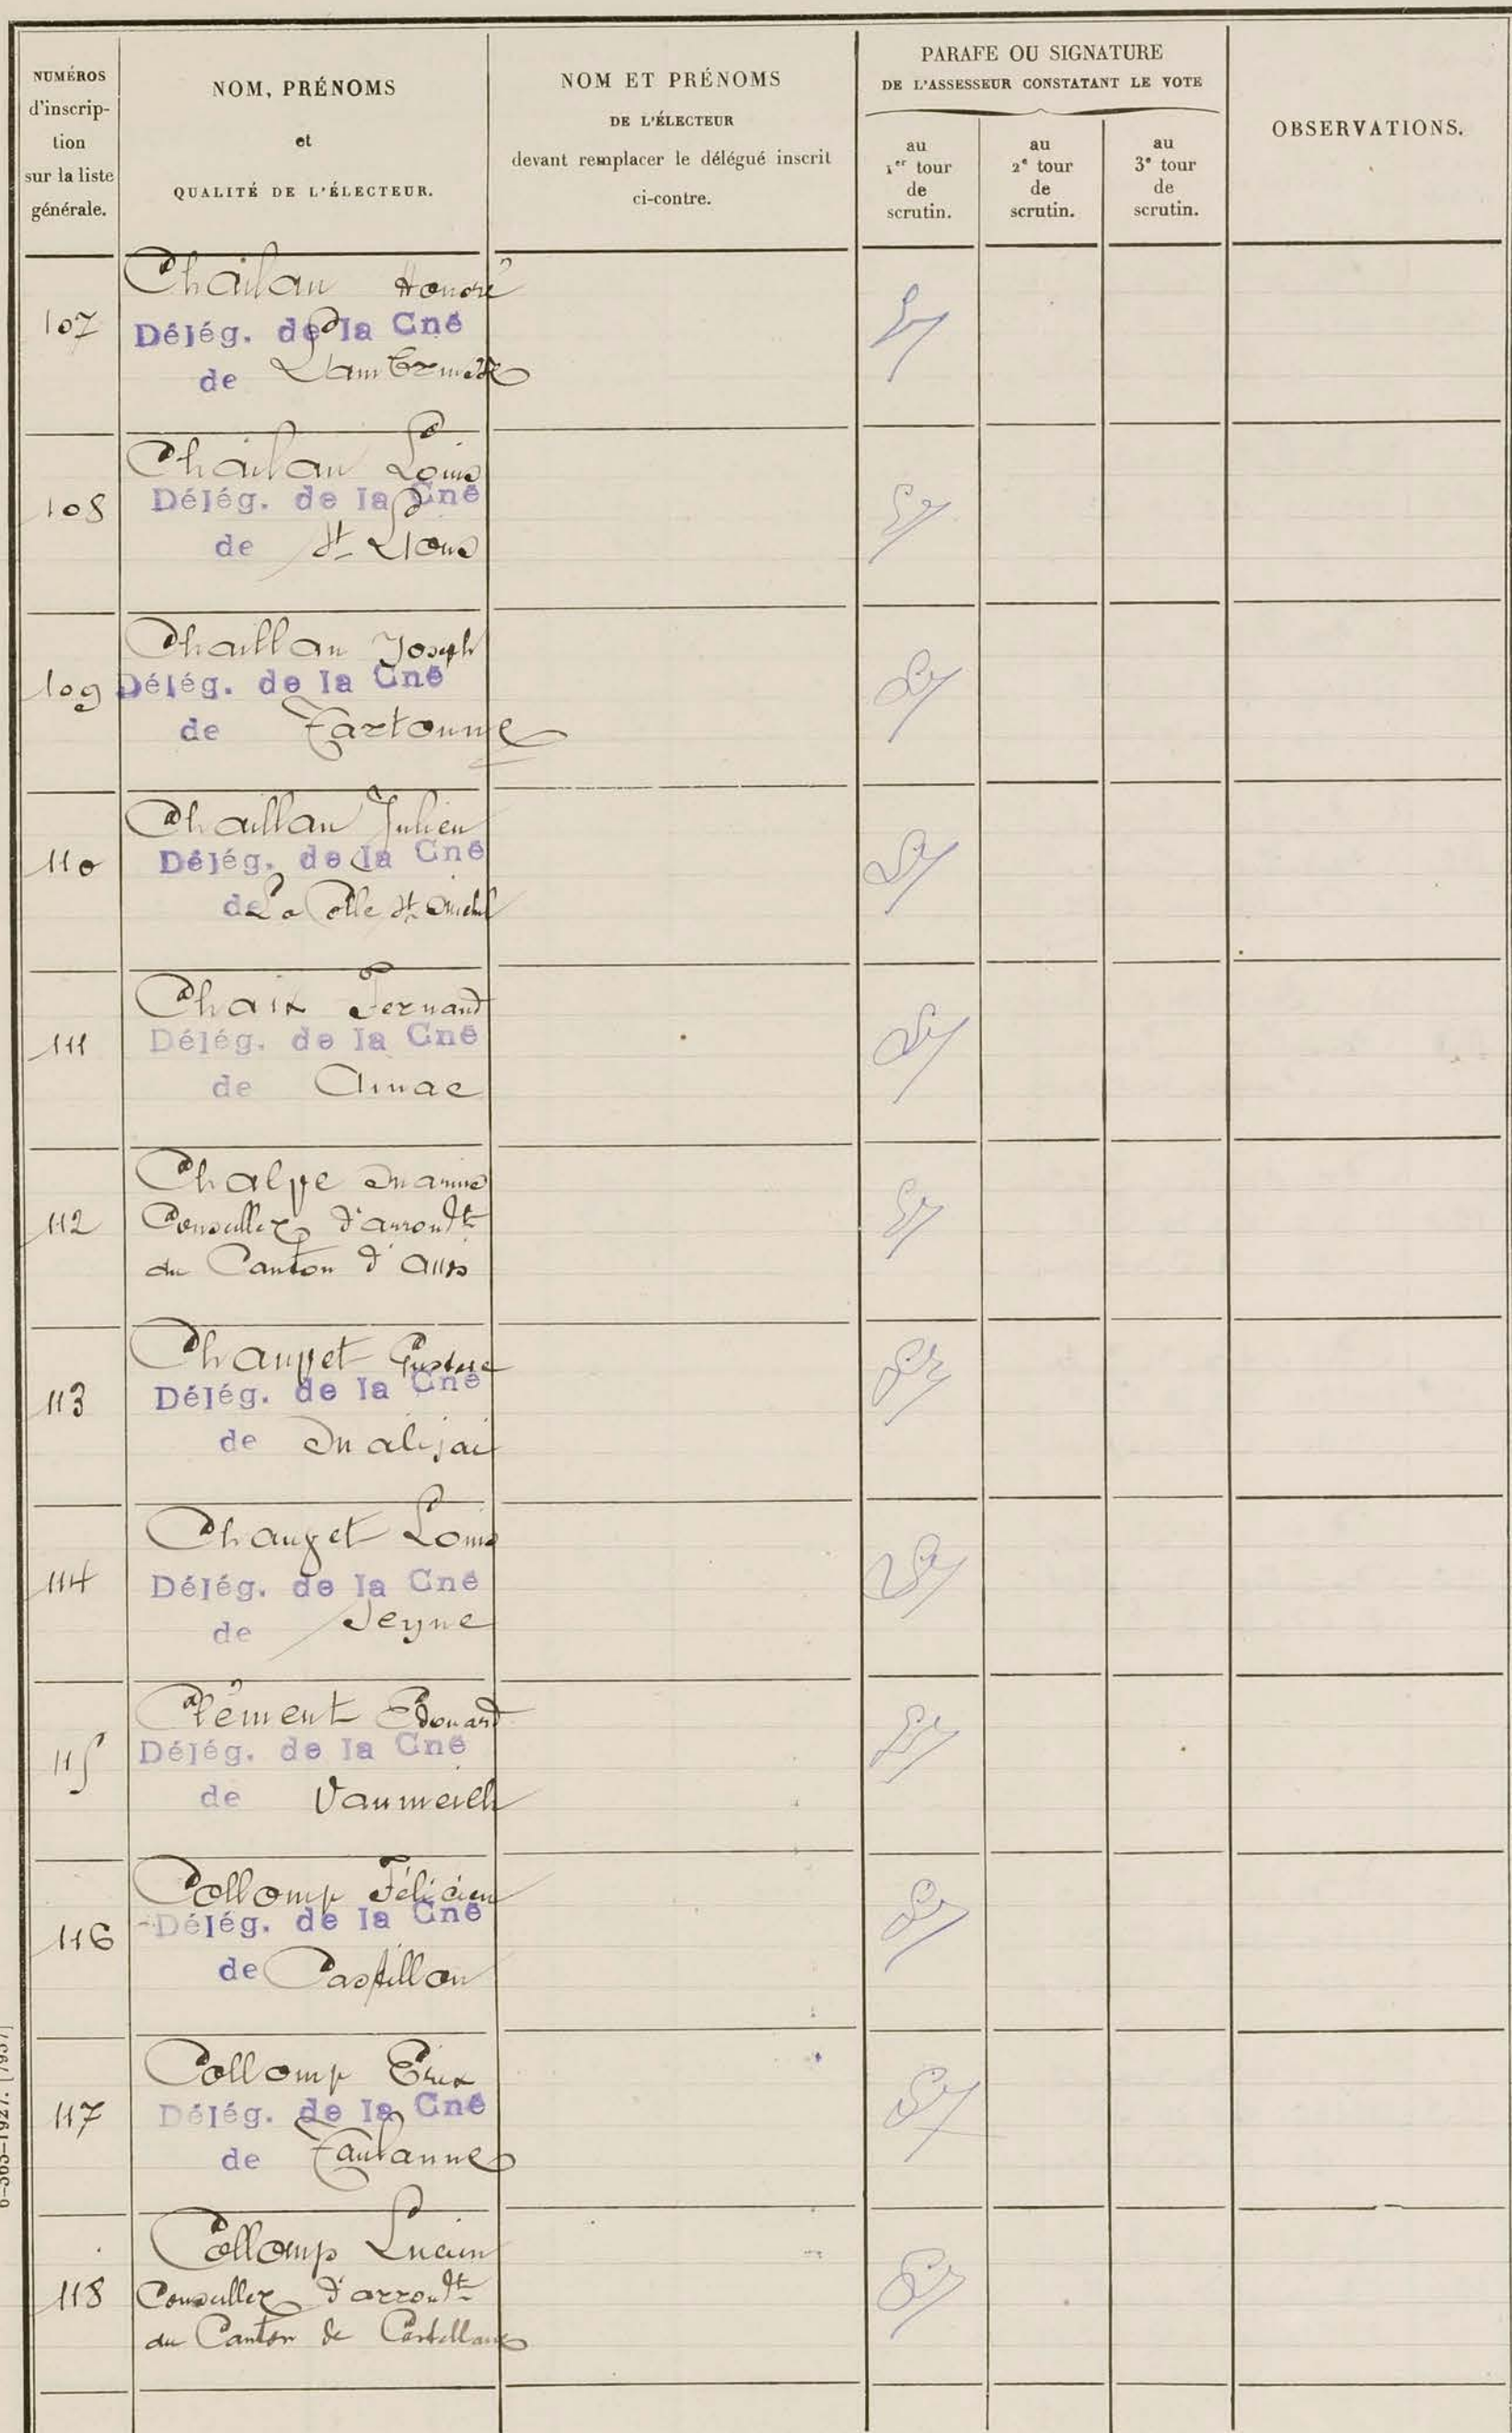 NUMÉROS
d'inscrip-
tion
sur la liste
générale.
NOM, PRÉNOMS
et
QUALITÉ DE L'ÉLECTEUR.
NOM ET PRÉNOMS
DE L'ÉLECTEUR
devant remplacer le délégué inscrit
ci-contre.
PARAFE OU SIGNATURE
DE L'ASSESSEUR CONSTATANT LE VOTE
au
1er tour
de
scrutin.
au
2e tour
de
scrutin.
au
3e tour
de
scrutin.
OBSERVATIONS.
Chailan Honoré
107 Délég. de la Cne
de Lambruisse
Chailan Louis
108 Délég. de la Cne
de St Lions
Chaillan Joseph
109 Délég. de la Cne
de Tartonne
Chaillan Julien
110 Délég. de la Cne
de La Colle St Michel
Chaix Fernand
111 Délég. de la Cne
de
Chalve Marius
112 Conseiller d'arrondt
du Canton d'Allos
Chauvet Gustave
113 Délég. de la Cne
de Malijai
Chauvet Louis
114 Délég. de la Cne
de Seyne
Clément Edouard
115 Délég. de la Cne
de Vaumeilh
Collomp Félicien
116 Délég. de la Cne
de Castillon
Collomp
117 Délég. de la Cne
de Taulanne
Collomp Lucien
118 Conseiller d'arrondt
du Canton de Castellane
6-365-1927. [7957]